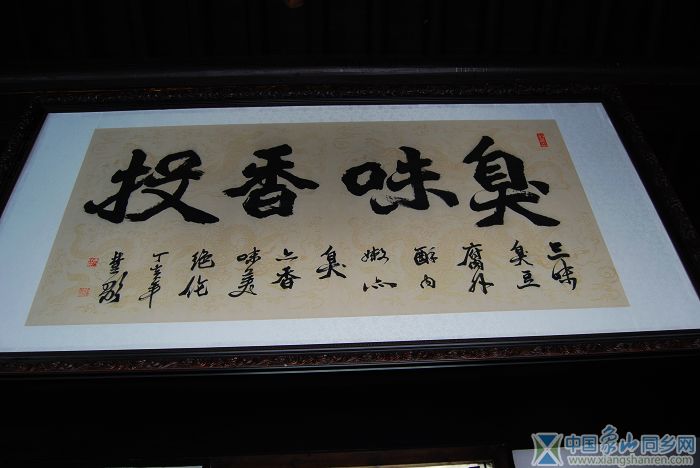 臭味香投
三味
臭豆
腐外
酥内
嫩
臭
香
味美
绝伦
丁亥年
中国象山同乡网
www.xiangshanren.com